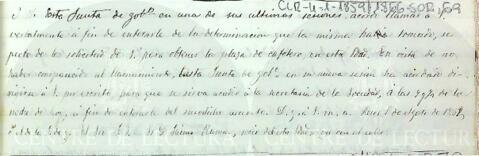 CLR-4-1-1859/1866-SOR, 69
Esta Junta de gobº en una de sus ultimas sesiones, acordó llamar á V.
verbalmente á fin de enterarle de la determinacion que la misma habia tomado, res
pecto de la solicitud de V. para obtener la plaza de cafetero, en esta Sdad. En vista de no
haber comparecido al llamamiento, esta Junta de gobº en su nueva sesion ha acordado di-
rigirse á V. por escrito, para que se sirva acudir á la secretaria de la Sociedad, á las 9½ de la
noche de hoy, á fin de enterarle del susodicho acuerdo. D. g. á V. m. a. Reus 1 de Agosto de 1862,
Sr. D. Jaime
CENTRE DE LECTURA